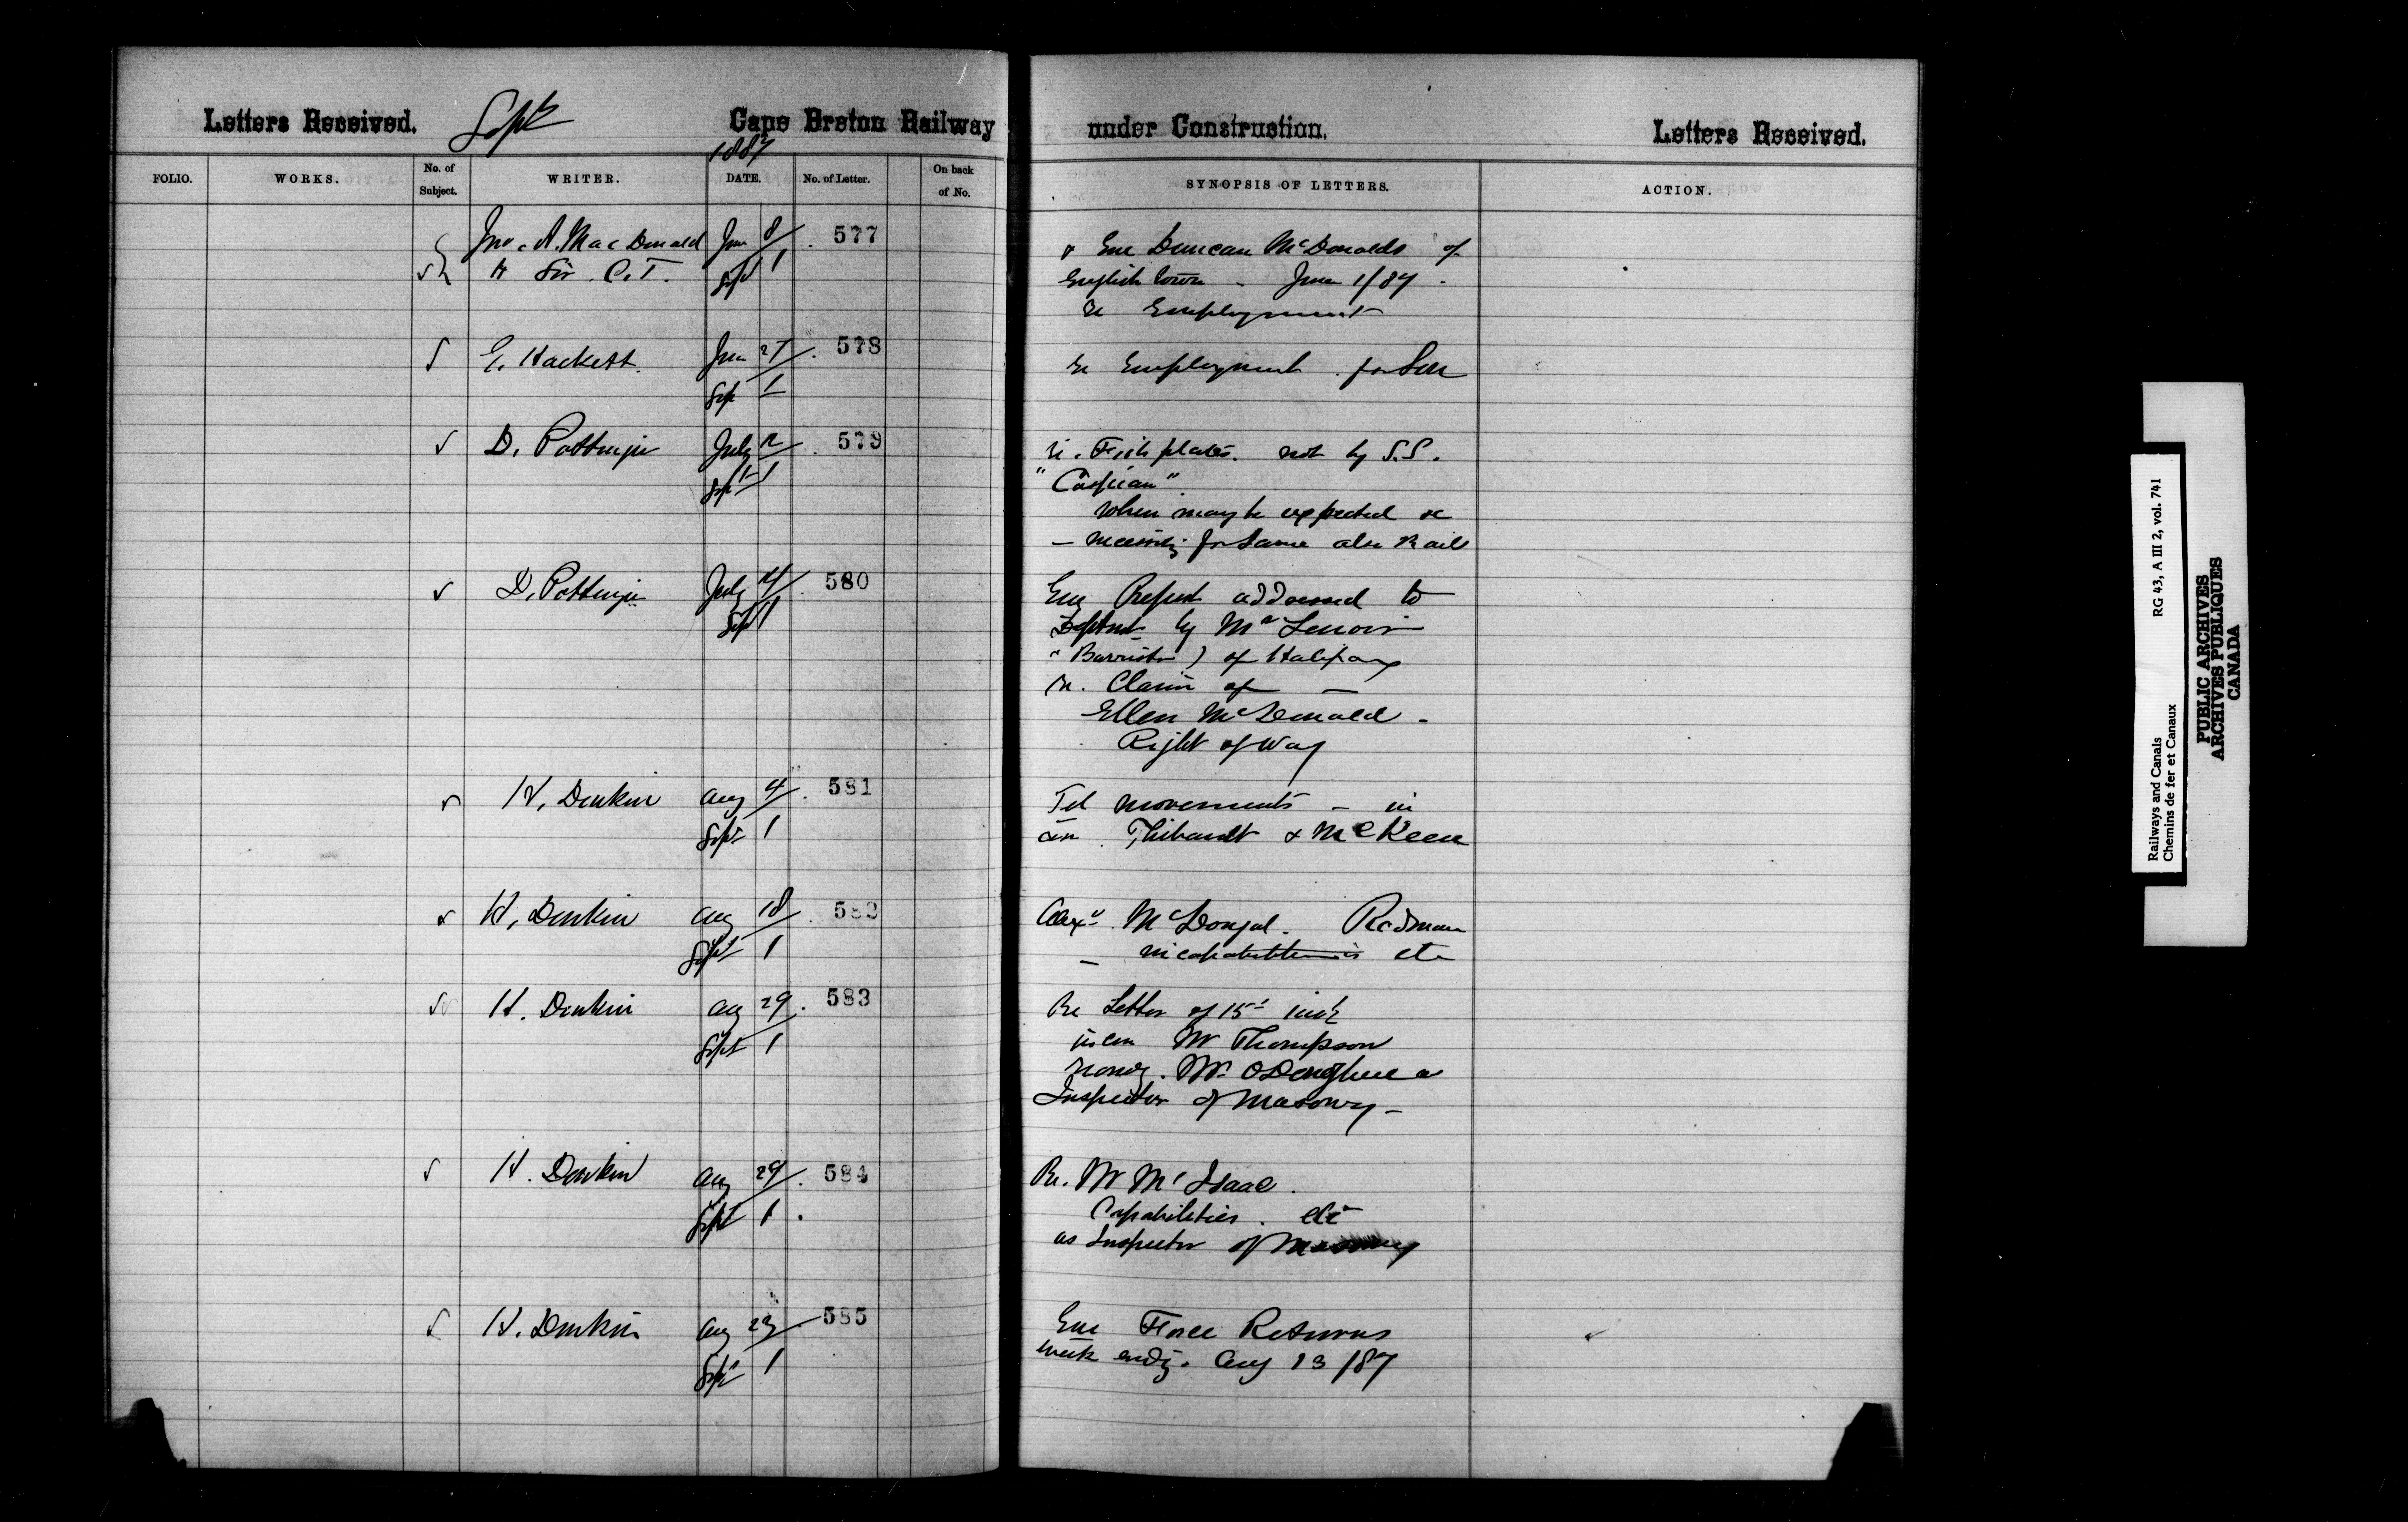 Letters Received. Sept Cape Breton Railway under Construction. Letters Received.
1887
FOLIO. WORKS. No. of Subject. WRITER. DATE. No. of Letter. On back of No. SYNOPSIS OF LETTERS. ACTION.
Jno. A. MacDonald June 8/ 577
Sir C. T. Sept 1
Enc Duncan McDonalds of
English town - June 1/87 -
re Employment
E. Hackett. June 27/ 578
Sept 1
re Employment for Son
D. Pottinger July 12/ 579
Sept 1
re. Fish plates. not by S.S.
"Caspian"
When may be expected &c
- necessity for same also Rails
D. Pottinger July 14/ 580
Sept 1
Enc Report addressed to
Deptmt by Mr Lenoir
"Barrister) of Halifax
re. Claim of -
Ellen McDonald -
Right of Way
H. Donkin Aug 4/ 581
Sept 1
Tel movements - in
con. Thibault & McKeen
H. Donkin Aug 18/ 582
Sept 1
Alexr. McDougal. Rodman
- incapabilities etc
H. Donkin Aug 29/ 583
Sept 1
Re Letter of 15th inst
in con Mr Thompson
Mr. O'Donoghue as
Inspector of Masonry -
H. Donkin Aug 29/ 584
Sept 1
Re. Mr McIsaac.
Capabilities. etc
as Inspector of Masonry
H. Donkin Aug 23/ 585
Sept 1
Enc Force Returns
week endg. Aug 13/87
Railways and Canals RG 43, A III 2, vol. 741
Chemins de fer et Canaux
PUBLIC ARCHIVES
ARCHIVES PUBLIQUES
CANADA